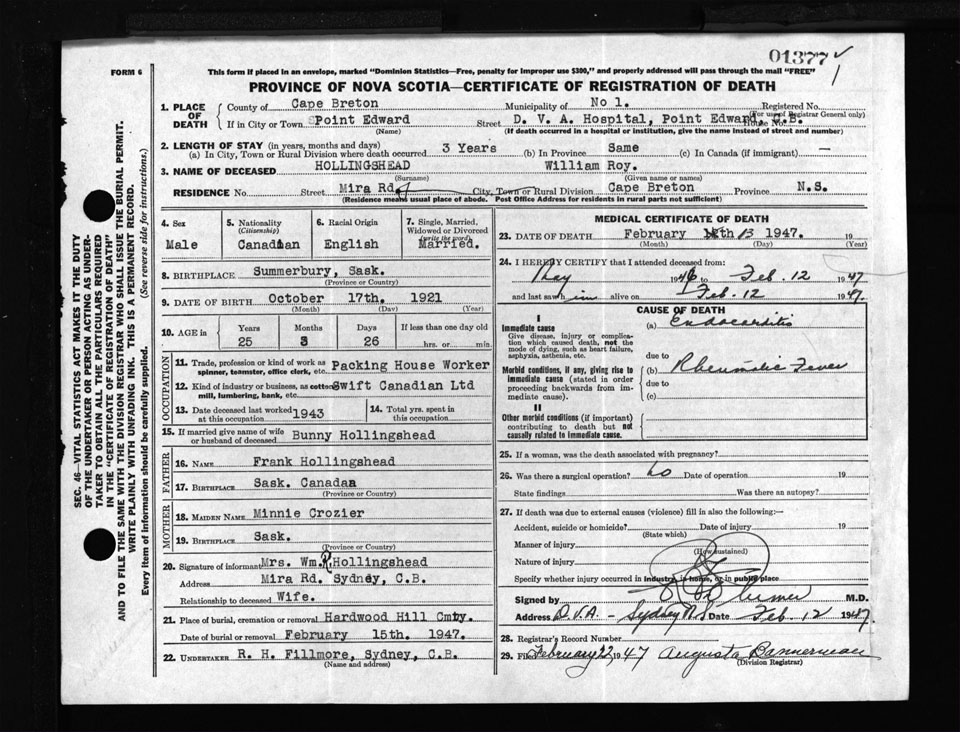 01377
FORM 6
This form if placed in an envelope, marked "Dominion Statistics—Free, penalty for improper use $300," and properly addressed will pass through the mail "FREE"
PROVINCE OF NOVA SCOTIA—CERTIFICATE OF REGISTRATION OF DEATH
1. PLACE OF DEATH
County of Cape Breton Municipality of No 1. Registered No.
(For use of Registrar General only)
If in City or Town Point Edward Street D. V. A. Hospital, Point Edward, C.B. House No.
(Name) (If death occurred in a hospital or institution, give the name instead of street and number)
2. LENGTH OF STAY (in years, months and days)
(a) In City, Town or Rural Division where death occurred 3 Years (b) In Province Same (c) In Canada (if immigrant) —
3. NAME OF DECEASED HOLLINGSHEAD William Roy.
(Surname) (Given name or names)
RESIDENCE No. Street Mira Rd. City, Town or Rural Division Cape Breton Province N.S.
(Residence means usual place of abode. Post Office Address for residents in rural parts not sufficient)
4. Sex Male
5. Nationality (Citizenship) Canadian
6. Racial Origin English
7. Single, Married, Widowed or Divorced (write the word) Married.
8. BIRTHPLACE Summerbury, Sask.
(Province or Country)
9. DATE OF BIRTH October 17th. 1921
(Month) (Day) (Year)
10. AGE in Years Months Days If less than one day old
25 3 26 hrs. or min.
OCCUPATION
11. Trade, profession or kind of work as spinner, teamster, office clerk, etc. Packing House Worker
12. Kind of industry or business, as cotton mill, lumbering, bank, etc. Swift Canadian Ltd
13. Date deceased last worked at this occupation 1943
14. Total yrs. spent in this occupation
15. If married give name of wife or husband of deceased Bunny Hollingshead
FATHER
16. NAME Frank Hollingshead
17. BIRTHPLACE Sask. Canada
(Province or Country)
MOTHER
18. MAIDEN NAME Minnie Crozier
19. BIRTHPLACE Sask.
(Province or Country)
20. Signature of informant Mrs. Wm. R. Hollingshead
Address Mira Rd. Sydney, C.B.
Relationship to deceased Wife.
21. Place of burial, cremation or removal Hardwood Hill Cmty.
Date of burial or removal February 15th. 1947.
22. UNDERTAKER R. H. Fillmore, Sydney, C.B.
(Name and address)
MEDICAL CERTIFICATE OF DEATH
23. DATE OF DEATH February 13 1947. 19
(Month) (Day) (Year)
24. I HEREBY CERTIFY that I attended deceased from:
May 1946 to Feb. 12 1947
and last saw him alive on Feb. 12 1947.
CAUSE OF DEATH
I
Immediate cause
Give disease, injury or complication which caused death, not the mode of dying, such as heart failure, asphyxia, asthenia, etc.
(a) Endocarditis
due to
Morbid conditions, if any, giving rise to immediate cause (stated in order proceeding backwards from immediate cause).
(b) Rheumatic Fever
due to
(c)
II
Other morbid conditions (if important) contributing to death but not causally related to immediate cause.
25. If a woman, was the death associated with pregnancy?
26. Was there a surgical operation? no Date of operation 19
State findings Was there an autopsy?
27. If death was due to external causes (violence) fill in also the following:—
Accident, suicide or homicide? Date of injury 19
(State which)
Manner of injury
(How sustained)
Nature of injury
Specify whether injury occurred in industry, in home, or in public place
Signed by M.D.
Address D.V.A. - Sydney N.S. Date Feb. 12 1947
28. Registrar's Record Number
29. Filed February 22 1947 Augusta Bannerman
(Division Registrar)
SEC. 46—VITAL STATISTICS ACT MAKES IT THE DUTY
OF THE UNDERTAKER OR PERSON ACTING AS UNDER-
TAKER TO OBTAIN ALL THE PARTICULARS REQUIRED
IN THE "CERTIFICATE OF REGISTRATION OF DEATH"
AND TO FILE THE SAME WITH THE DIVISION REGISTRAR WHO SHALL ISSUE THE BURIAL PERMIT.
WRITE PLAINLY WITH UNFADING INK. THIS IS A PERMANENT RECORD.
Every item of information should be carefully supplied. (See reverse side for instructions.)